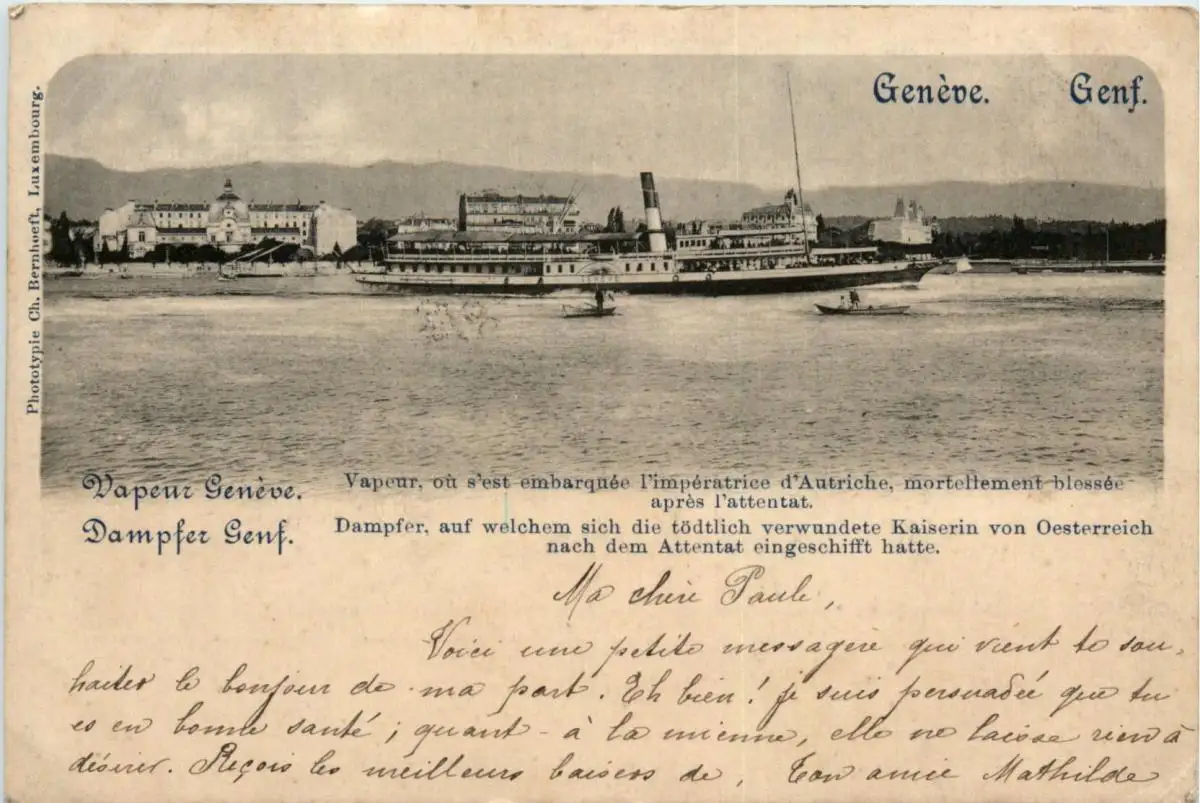 Genève. Genf.
Phototypie Ch. Bernhoeft, Luxembourg.
Vapeur Genève.
Dampfer Genf.
Vapeur, où s'est embarquée l'impératrice d'Autriche, mortellement blessée
après l'attentat.
Dampfer, auf welchem sich die tödtlich verwundete Kaiserin von Oesterreich
nach dem Attentat eingeschifft hatte.
Ma chère Paule,
Voici une petite messagère qui vient te sou-
haiter le bonjour de ma part. Eh bien! je suis persuadée que tu
es en bonne santé; quant-à la mienne, elle ne laisse rien à
désirer. Reçois les meilleurs baisers de, Ton amie Mathilde